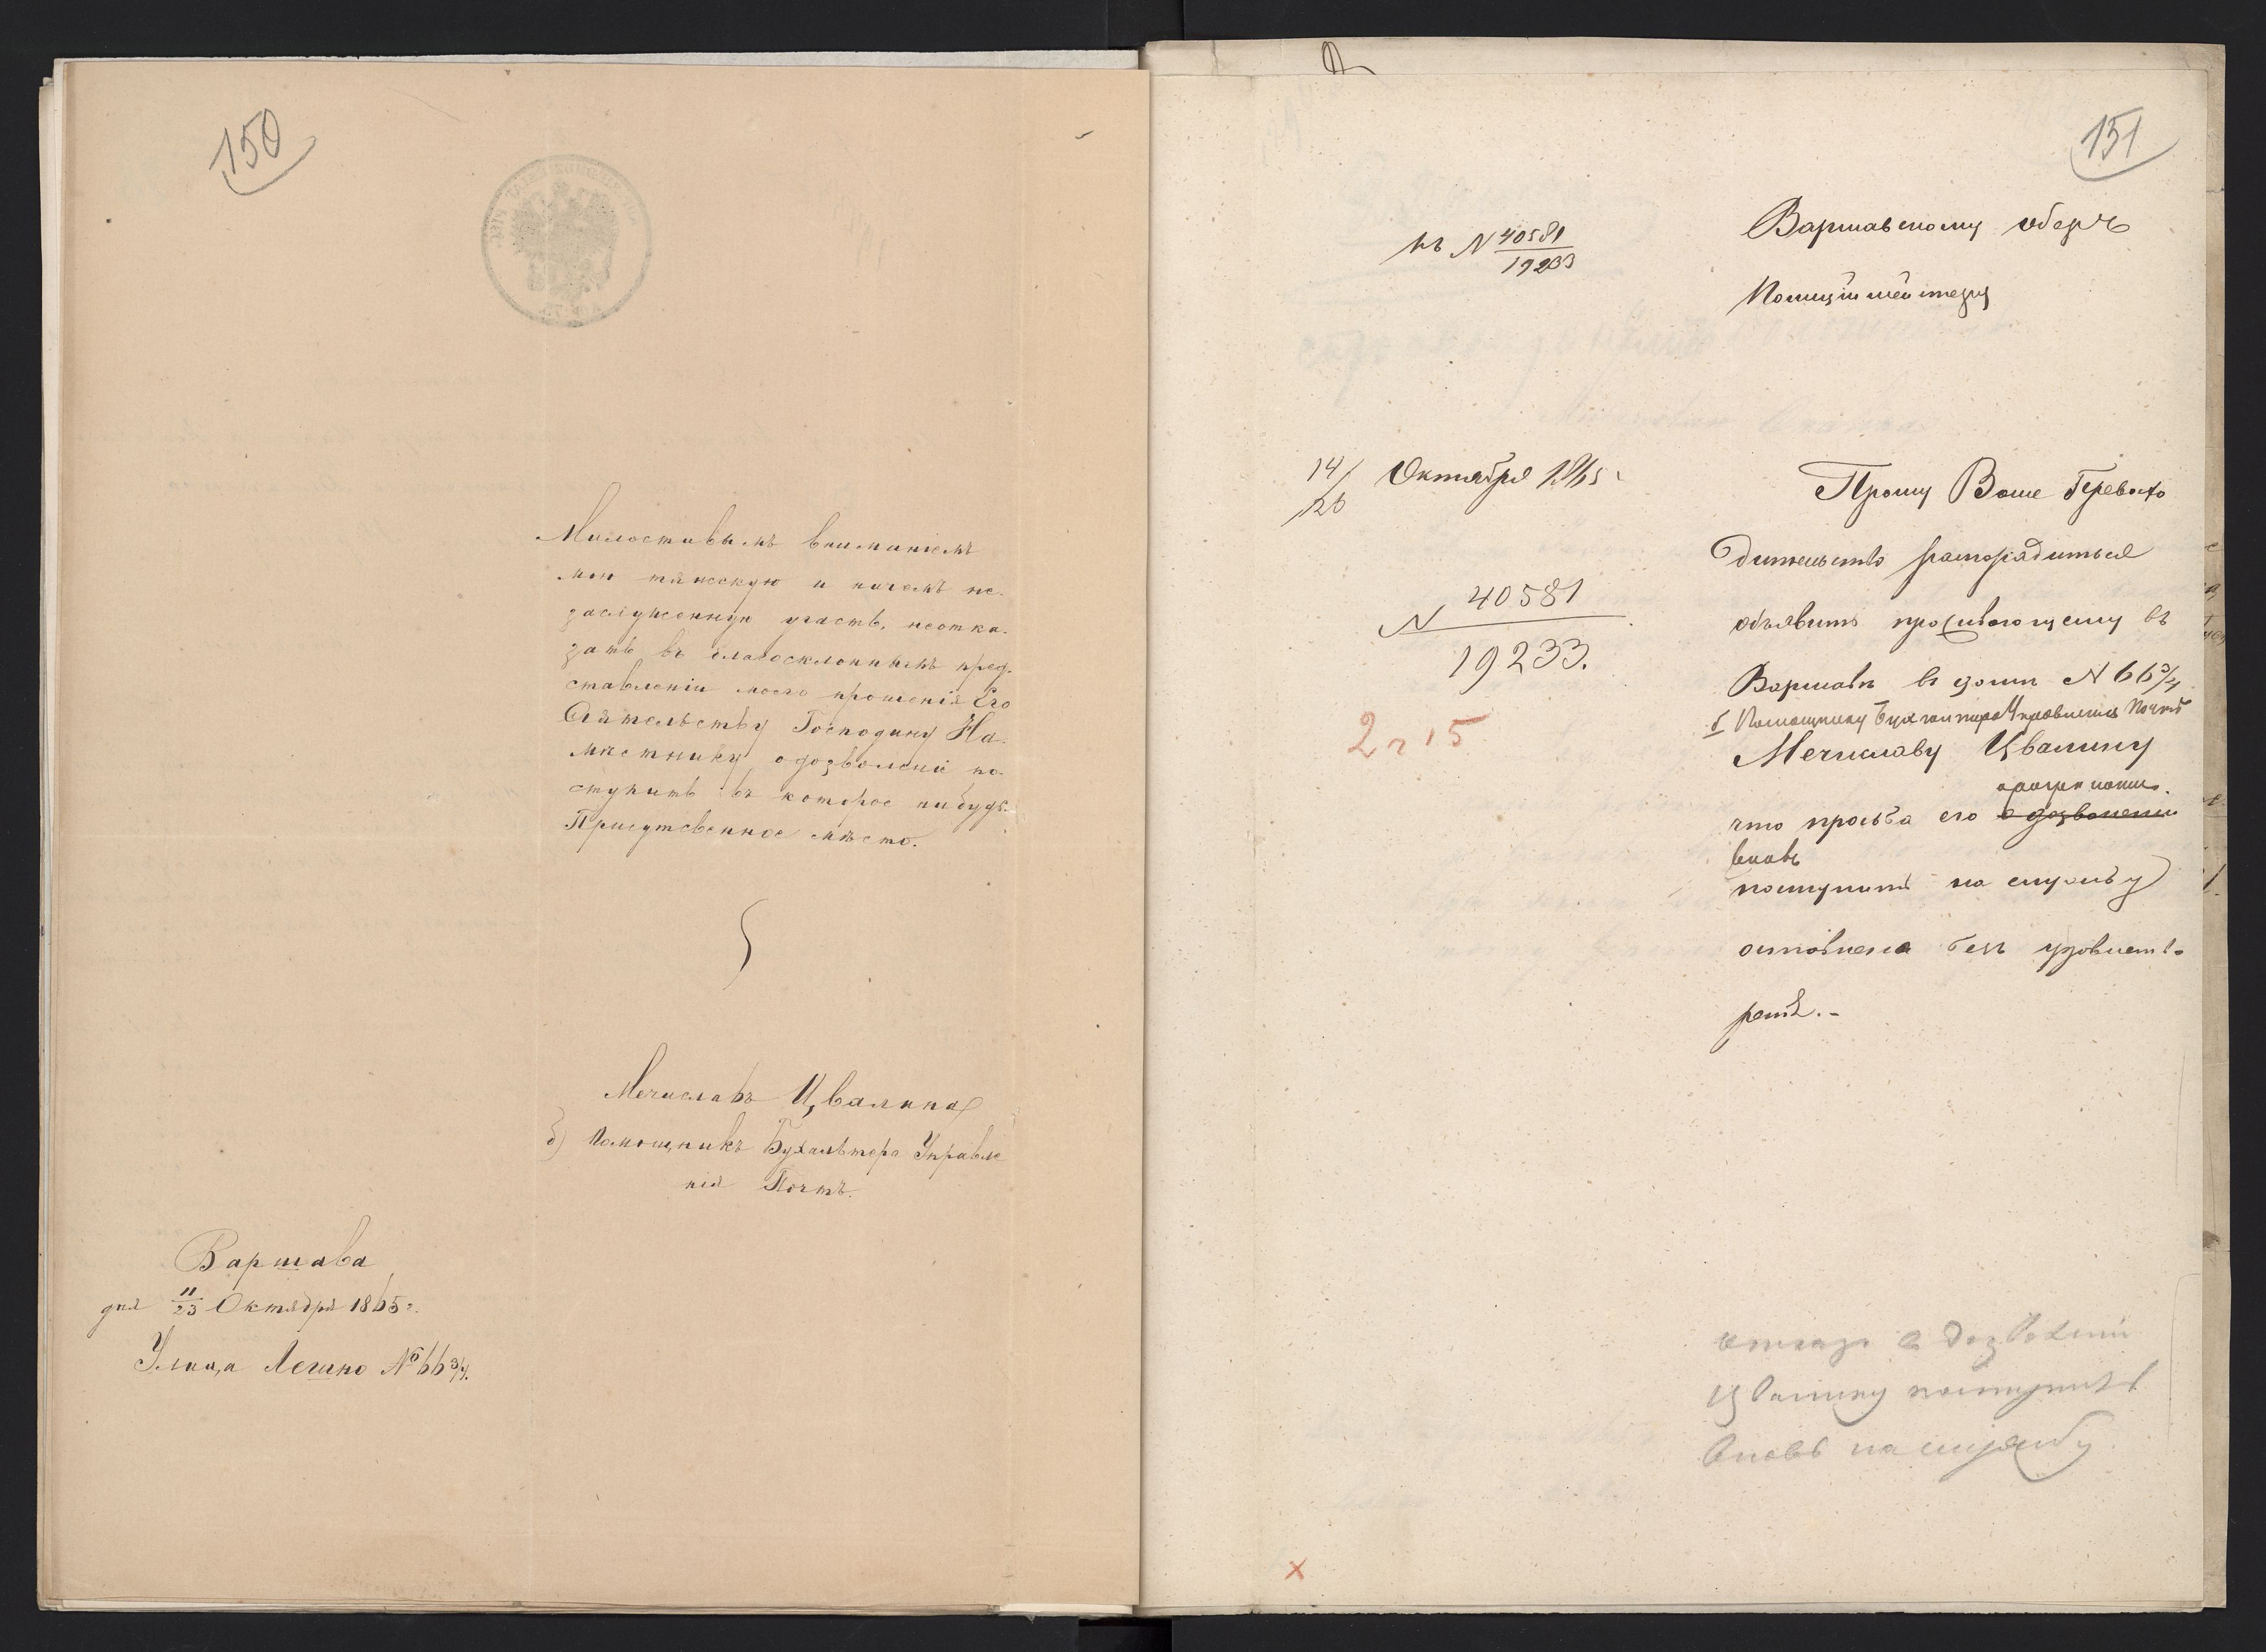 150
Милостивымъ вниманіемъ
мою тяжскую и ничемъ не-
заслуженную участь, неотка-
зать въ благосклонныхъ пред-
ставленіи моего прошенія Его
Сіятельству Господину На-
мѣстнику одозволеніи по-
ступить въ которое нибудь
Присутсвенное мѣсто.
Мечиславъ Цвалина
б) Помощникъ Бухальтера Управле
нія Почтъ.
Варшава
дня 11/23 Октября 1865 г.
Улица Лешно № 663/4.
151
къ N 40581/19233
Варшавскому оберъ
Полиціймейстеру
14/26 Октября 1865 г
N 40581/19233.
2 г 15
Прошу Ваше Превосхо
дительство распорядиться
объявить проживающему въ
Варшавѣ въ домѣ N 663/4
б Помощнику Бухгалтера Управленія Почтъ
Мечиславу Цвалину
что просьба его о дозволеніи
вновь
поступить на службу
оставлена безъ удовлетво
ренія.-
отказъ в дозволеніи
Цвалину поступить
вновь на службу.